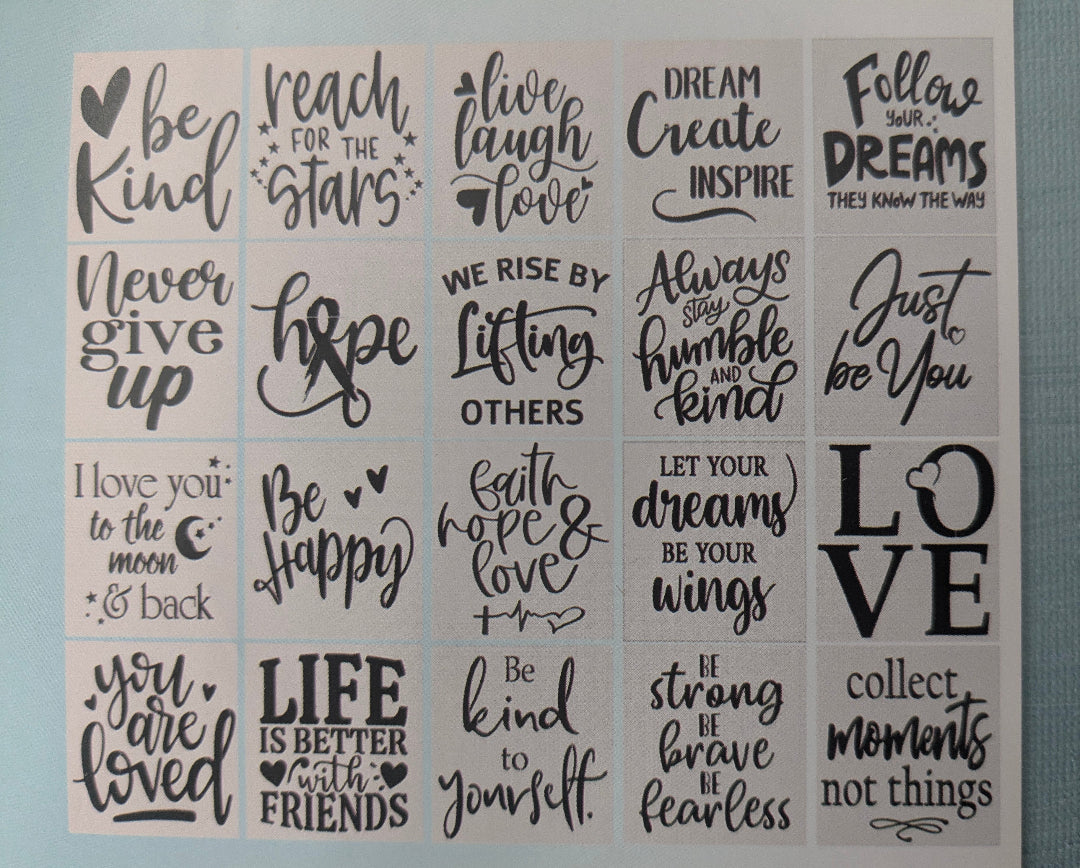 be
Kind
reach
FOR THE
stars
live
laugh
love
DREAM
Create
INSPIRE
Follow
YOUR
DREAMS
THEY KNOW THE WAY
Never
give
up
hope
WE RISE BY
Lifting
OTHERS
Always
stay
humble
AND
kind
Just
be You
I love you
to the
moon
& back
Be
Happy
faith
hope &
love
LET YOUR
dreams
BE YOUR
wings
LO
VE
you
are
loved
LIFE
IS BETTER
with
FRIENDS
Be
kind
to
yourself.
BE
strong
BE
brave
BE
fearless
collect
moments
not things